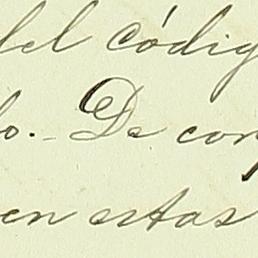 del códig
lo. - De con
en estas